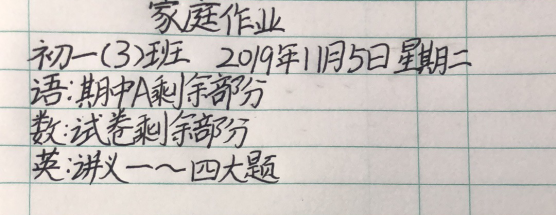 家庭作业
初一(3)班 2019年11月5日星期二
语:期中A剩余部分
数:试卷剩余部分
英:讲义一～四大题